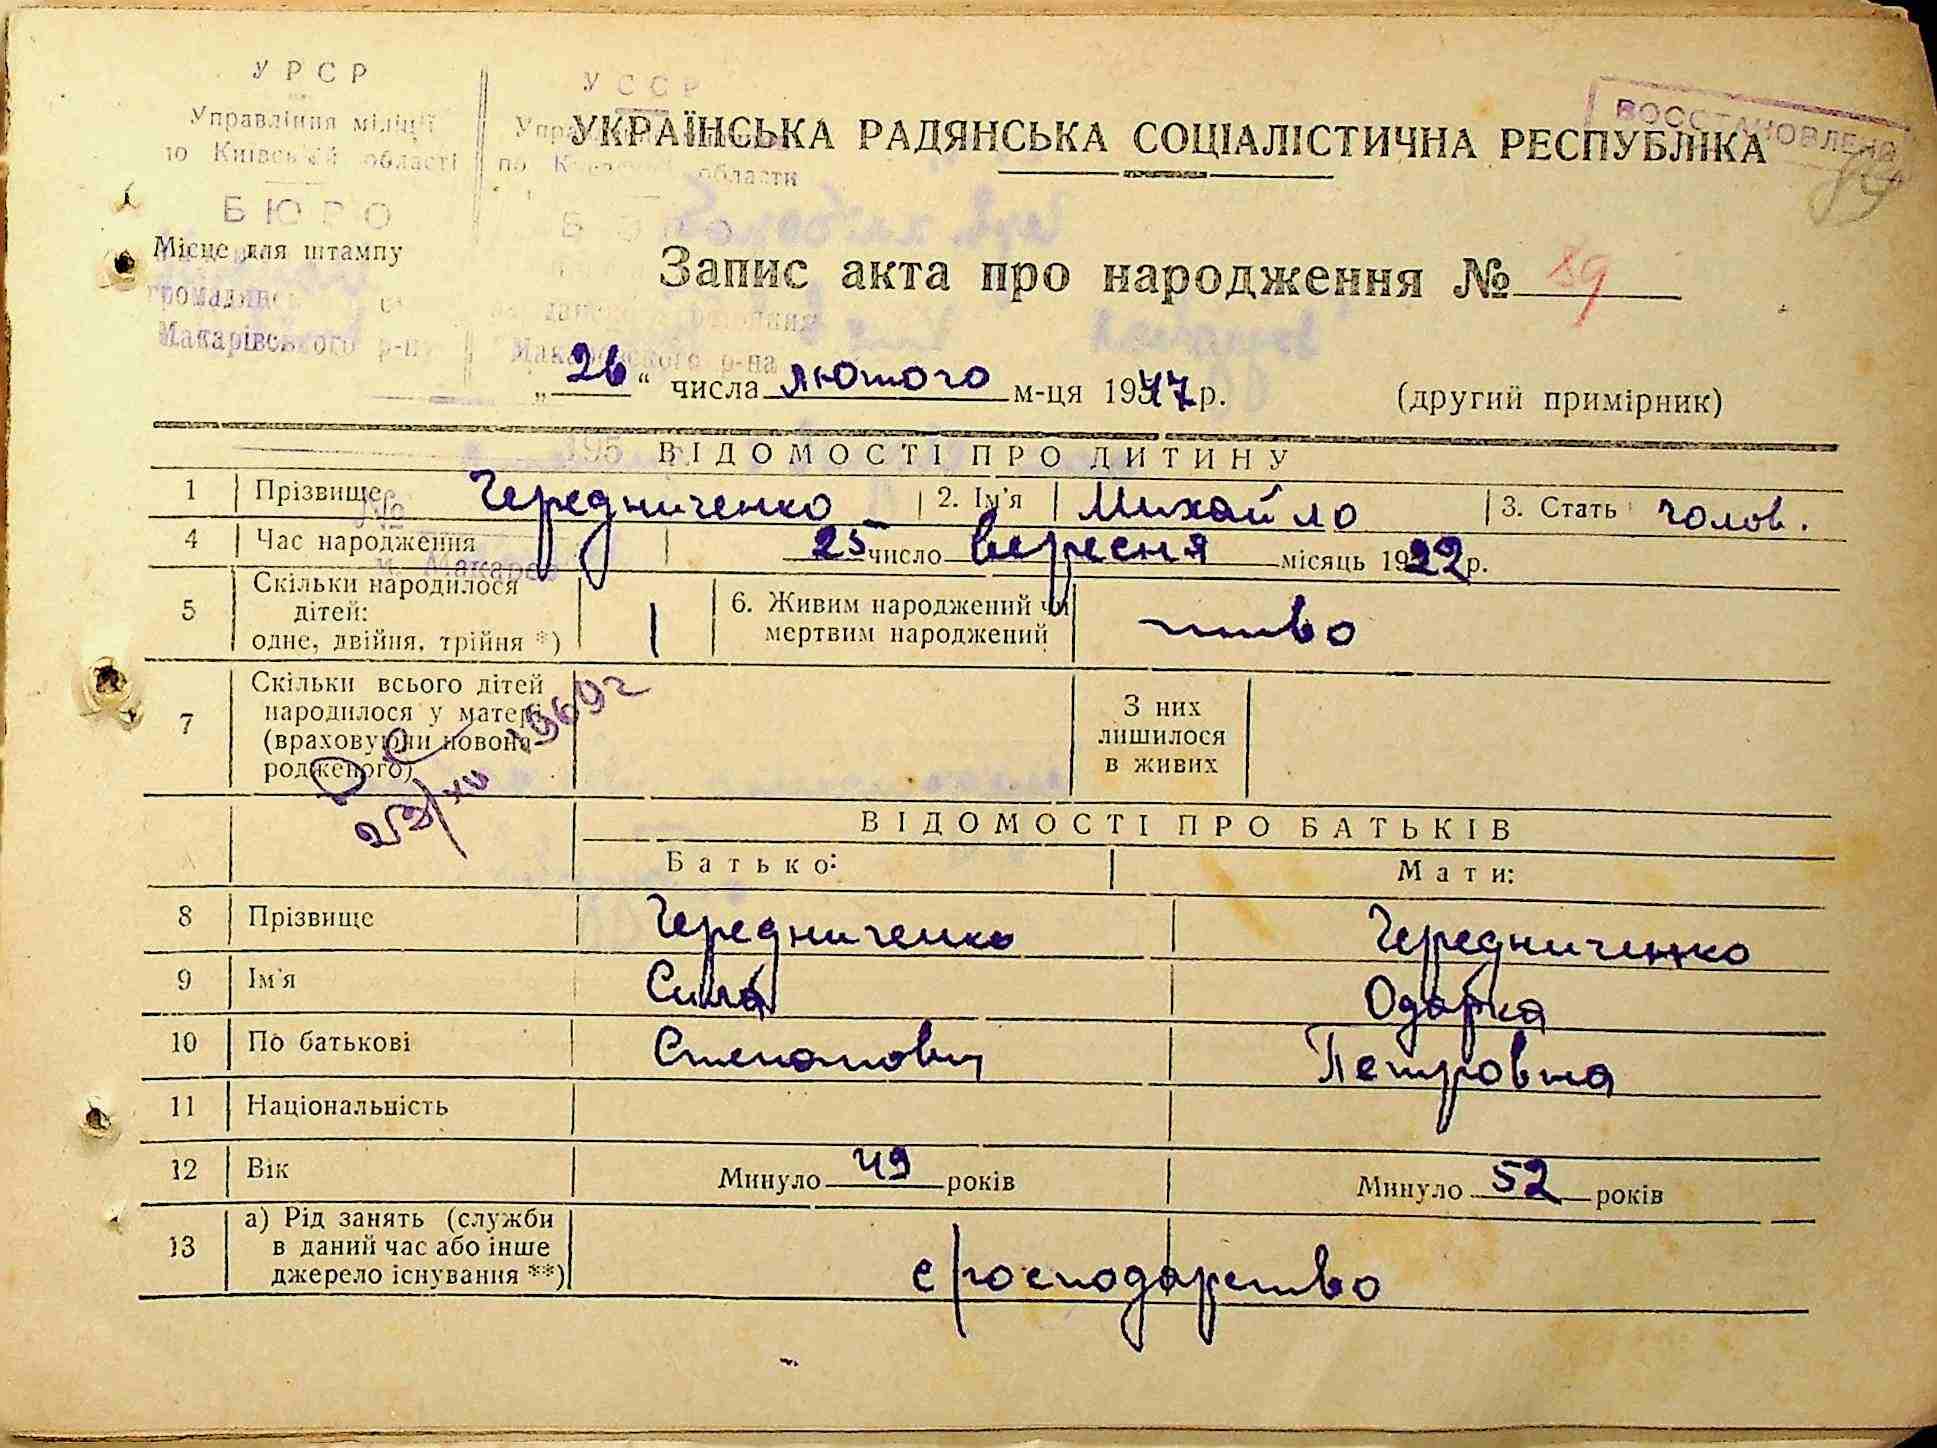 УРСР
УССР
Управління міліції
по Київській області
по области
ВОССТАНОВЛЕНО
УКРАЇНСЬКА РАДЯНСЬКА СОЦІАЛІСТИЧНА РЕСПУБЛІКА
БЮРО
Місце для штампу
Запис акта про народження № 89
Макарівського р-ну
Макаровского р-на
„26“ числа лютого м-ця 1947 р. (другий примірник)
195
ВІДОМОСТІ ПРО ДИТИНУ
1 Прізвище Чередниченко 2. Ім'я Михайло 3. Стать чолов.
№
4 Час народження 25 число вересня місяць 1922 р.
м. Макаров
5 Скільки народилося дітей: одне, двійня, трійня *) 1 6. Живим народжений чи мертвим народжений
7 Скільки всього дітей народилося у матері (враховуючи новонародженого) З них лишилося в живих
23/XII 1969 г
ВІДОМОСТІ ПРО БАТЬКІВ
Батько: Мати:
8 Прізвище Чередниченко Чередниченко
9 Ім'я Сила Одарка
10 По батькові Степанович Петровна
11 Національність
12 Вік Минуло 49 років Минуло 52 років
13 а) Рід занять (служби в даний час або інше джерело існування **) с/господарство